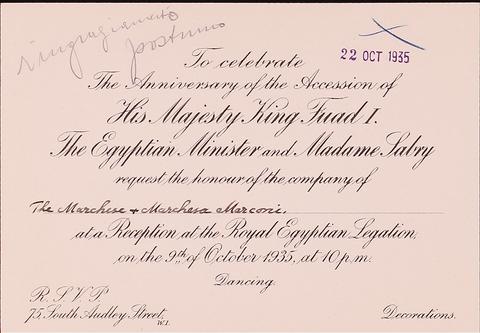 ringraziamento
postumo
22 OCT 1935
To celebrate
The Anniversary of the Accession of
His Majesty King Fuad I.
The Egyptian Minister and Madame Sabry
request the honour of the company of
The Marchese + Marchesa Marconi.
at a Reception at the Royal Egyptian Legation,
on the 9th of October 1935, at 10 p.m.
Dancing.
R.S.V.P.
75, South Audley Street,
W.1.
Decorations.